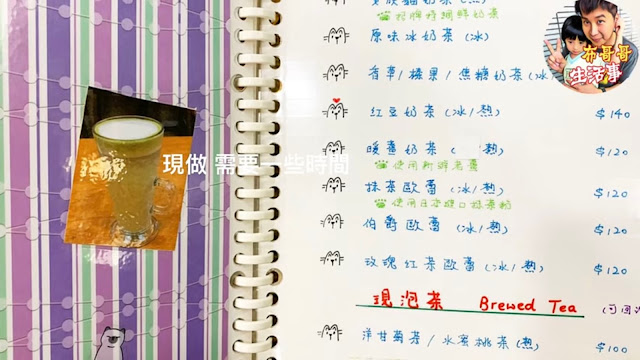 招牌特調鮮奶茶
原味冰奶茶 (冰)
香草/榛果/焦糖奶茶(冰/
紅豆奶茶 (冰/熱) $140
暖薑奶茶 ( 熱) $120
使用新鮮老薑
抹茶歐蕾 (冰/熱) $120
使用日本進口抹茶粉
伯爵歐蕾 (冰/熱) $120
玫瑰紅茶歐蕾 (冰/熱) $120
現泡茶 Brewed Tea (可回沖
洋甘菊茶/水蜜桃茶(熱) $100
現做 需要一些時間
布哥哥
生活事